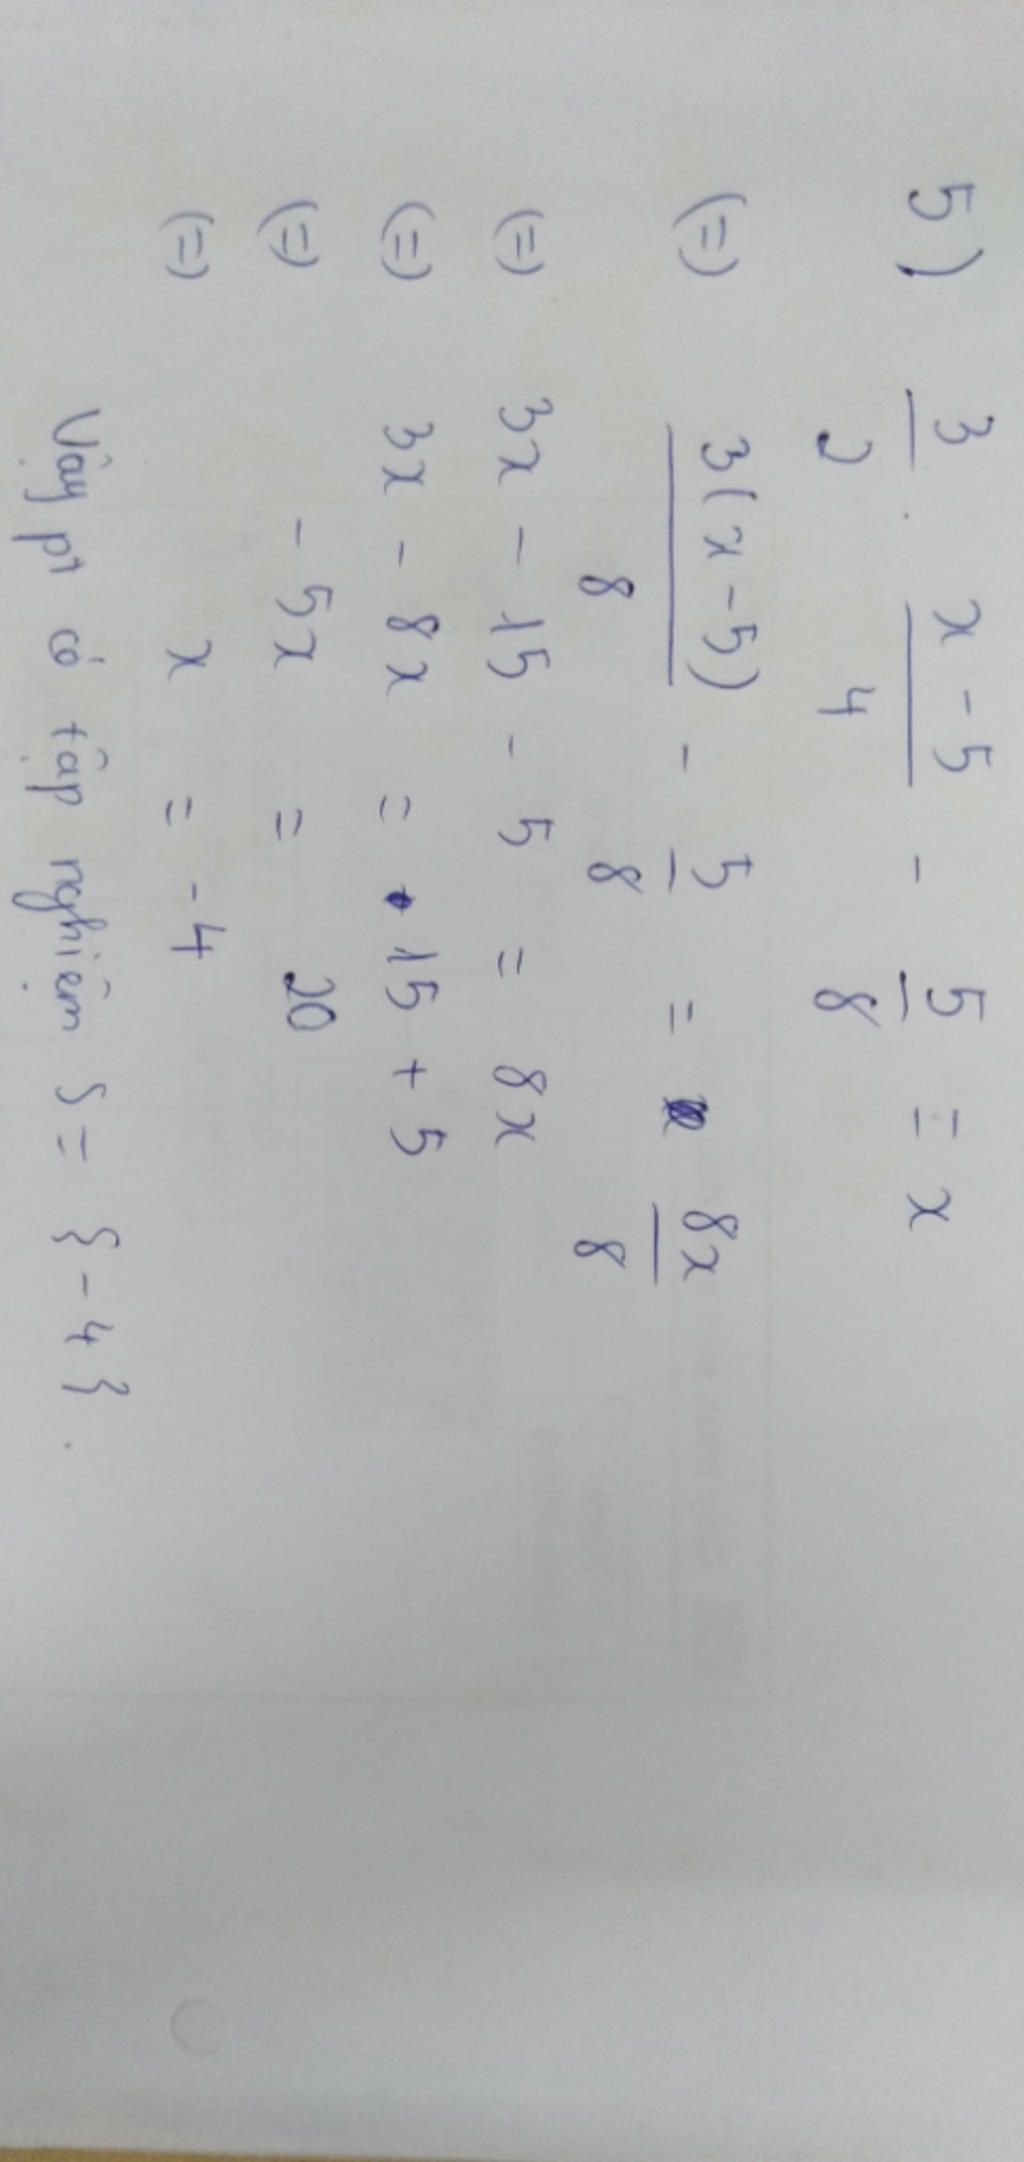 5) 3/2 . x-5/4 - 5/8 = x
(=) 3(x-5)/8 - 5/8 = 8x/8
(=) 3x - 15 - 5 = 8x
(=) 3x - 8x = 15 + 5
(=) - 5x = 20
(=) x = -4
Vậy pt có tập nghiệm S = {-4}.